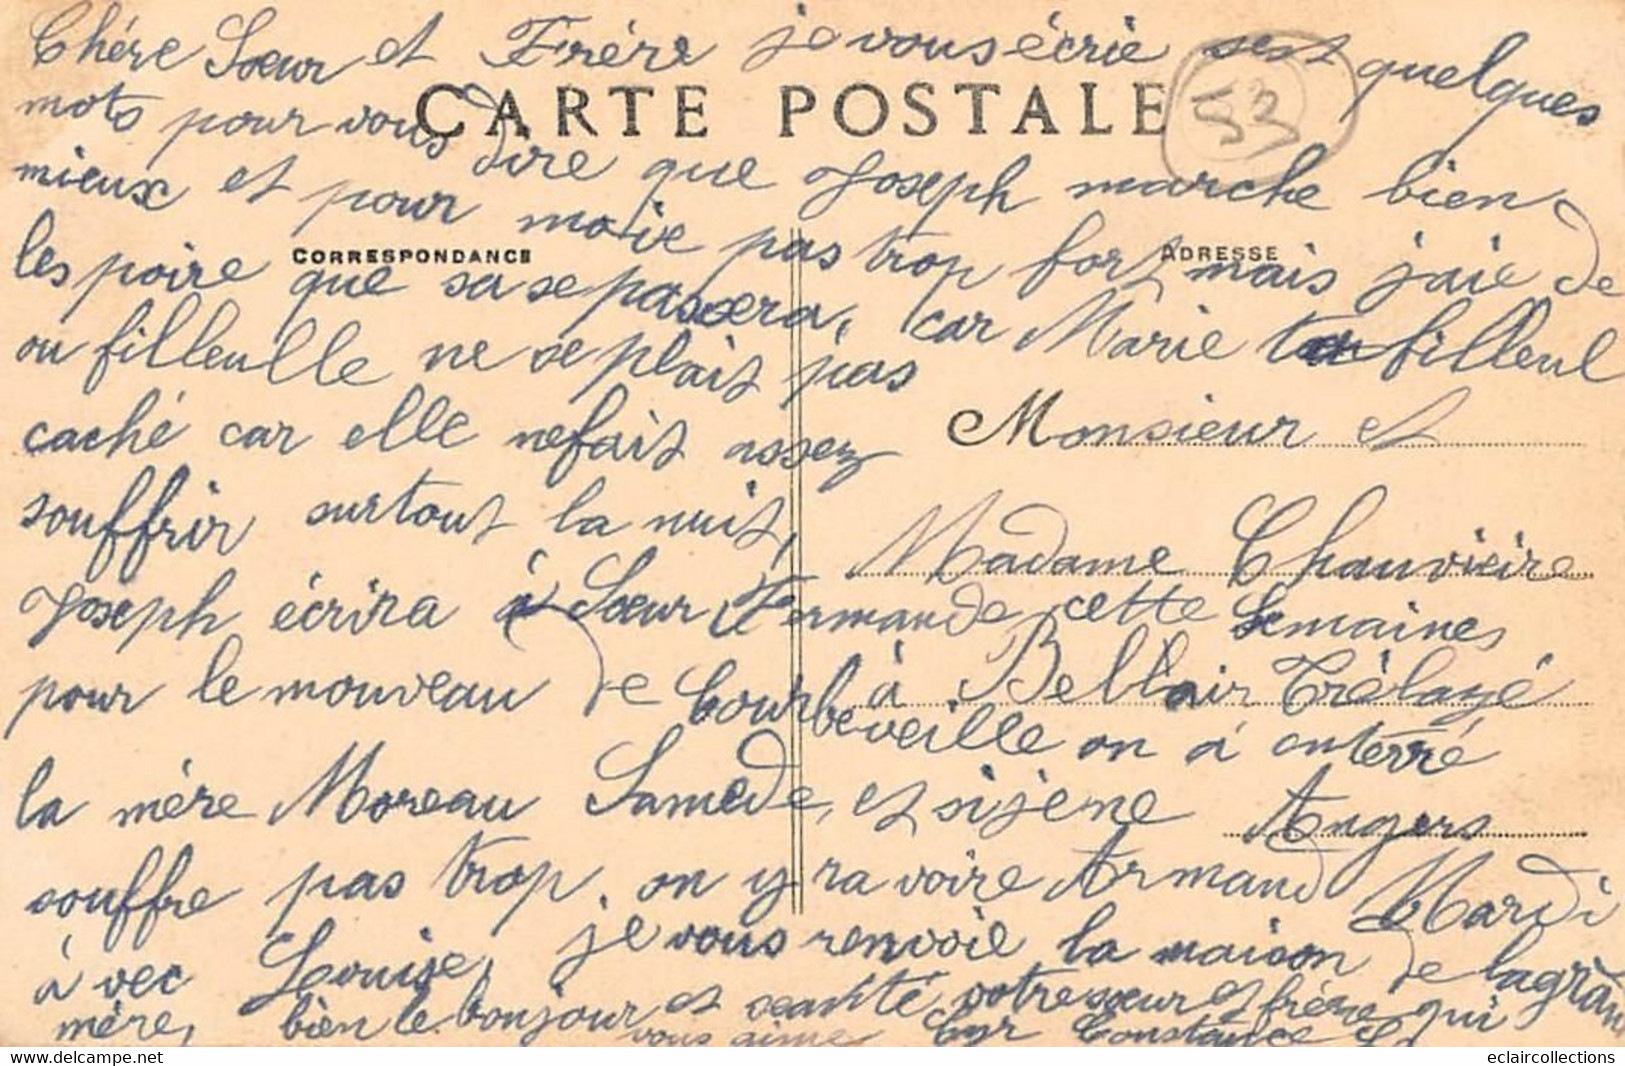 Chére Sœur et Frére je vous écrie sest quelques
CARTE POSTALE
53
mots pour vous dire que Joseph marche bien
mieux et pour moie pas trop fort mais jaie de
CORRESPONDANCE
ADRESSE
les poire que sa se passera, car Marie filleul
ou filleulle ne se plait pas
caché car elle me fait assez
souffrir surtout la nuit,
Monsieur et
Madame Chauvieire
à Bellair Trélazé
Angers
Joseph écrira à Sœur Fernande cette semaine,
pour le mouveau de Courbeveille on a enterré
la mère Moreau Samede, et sijene
souffre pas trop. on y ra voire Armand Mardi
à vec Louise, je vous renvoie la maison de la gran
mère, bien le bonjour et seanté votre sœur et frére qui
vous aime Constance
www.delcampe.net
eclaircollections